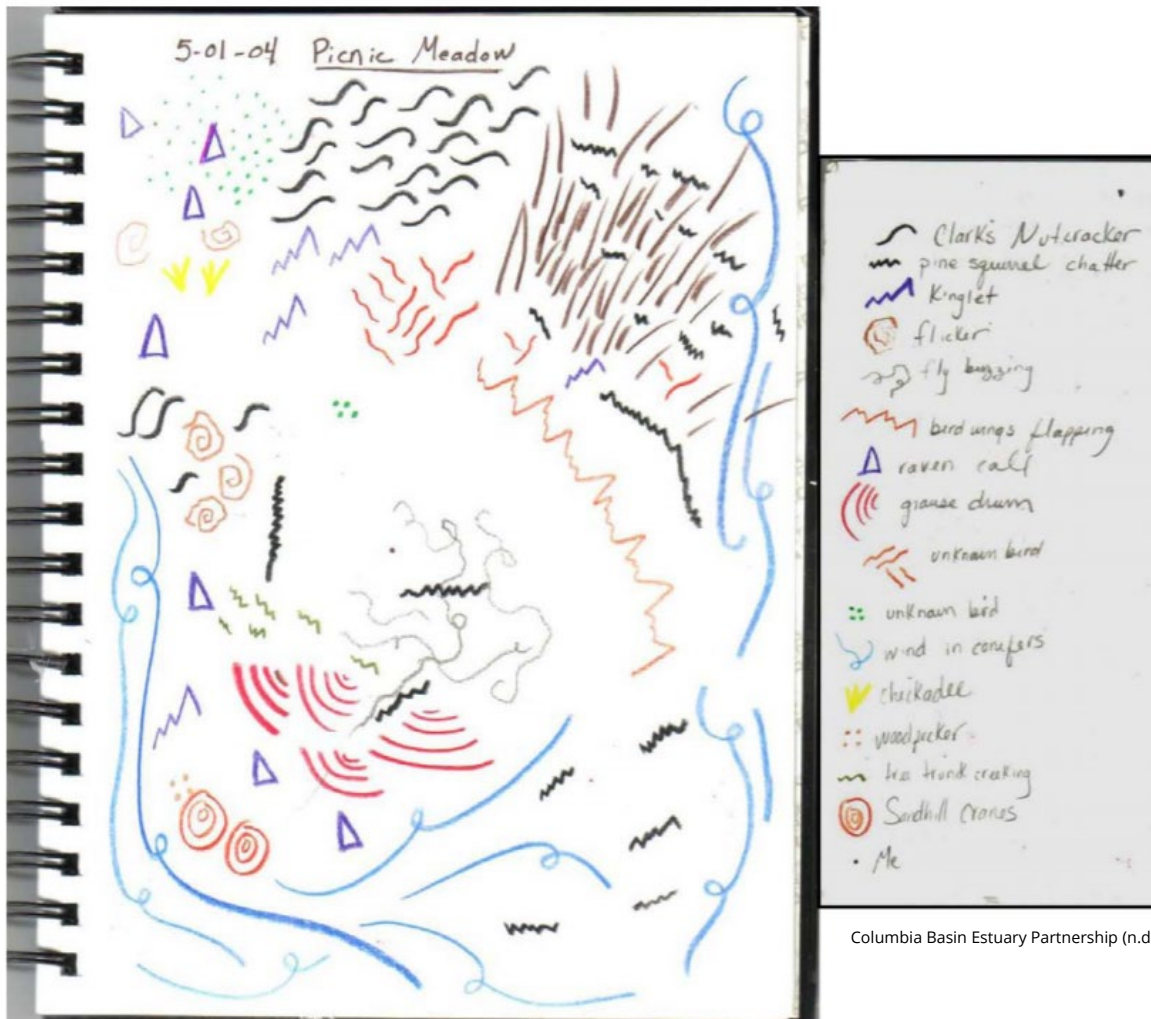 5-01-04 Picnic Meadow
Clark's Nutcracker
pine squirrel chatter
Kinglet
flicker
fly buzzing
bird wings flapping
raven call
grouse drum
unknown bird
unknown bird
wind in conifers
chickadee
woodpecker
tree trunk creeking
Sandhill Cranes
Me
Columbia Basin Estuary Partnership (n.d